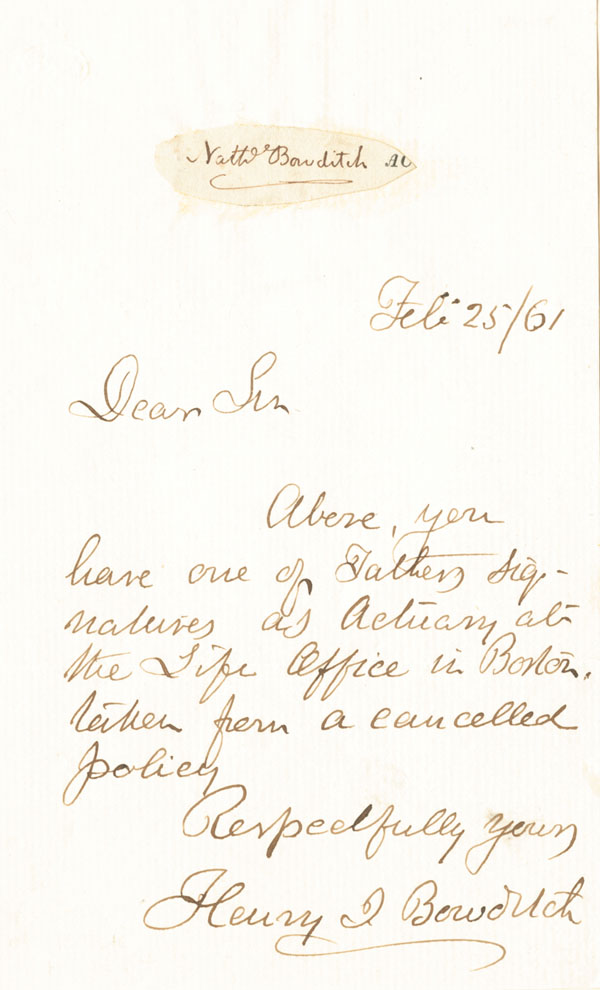 Nathl Bowditch Ac
Feb 25/61
Dear Sir
Above, you
have one of Fathers sig-
natures as Actuary at
the Life Office in Boston.
taken from a cancelled
policy
Respectfully yours
Henry I Bowditch